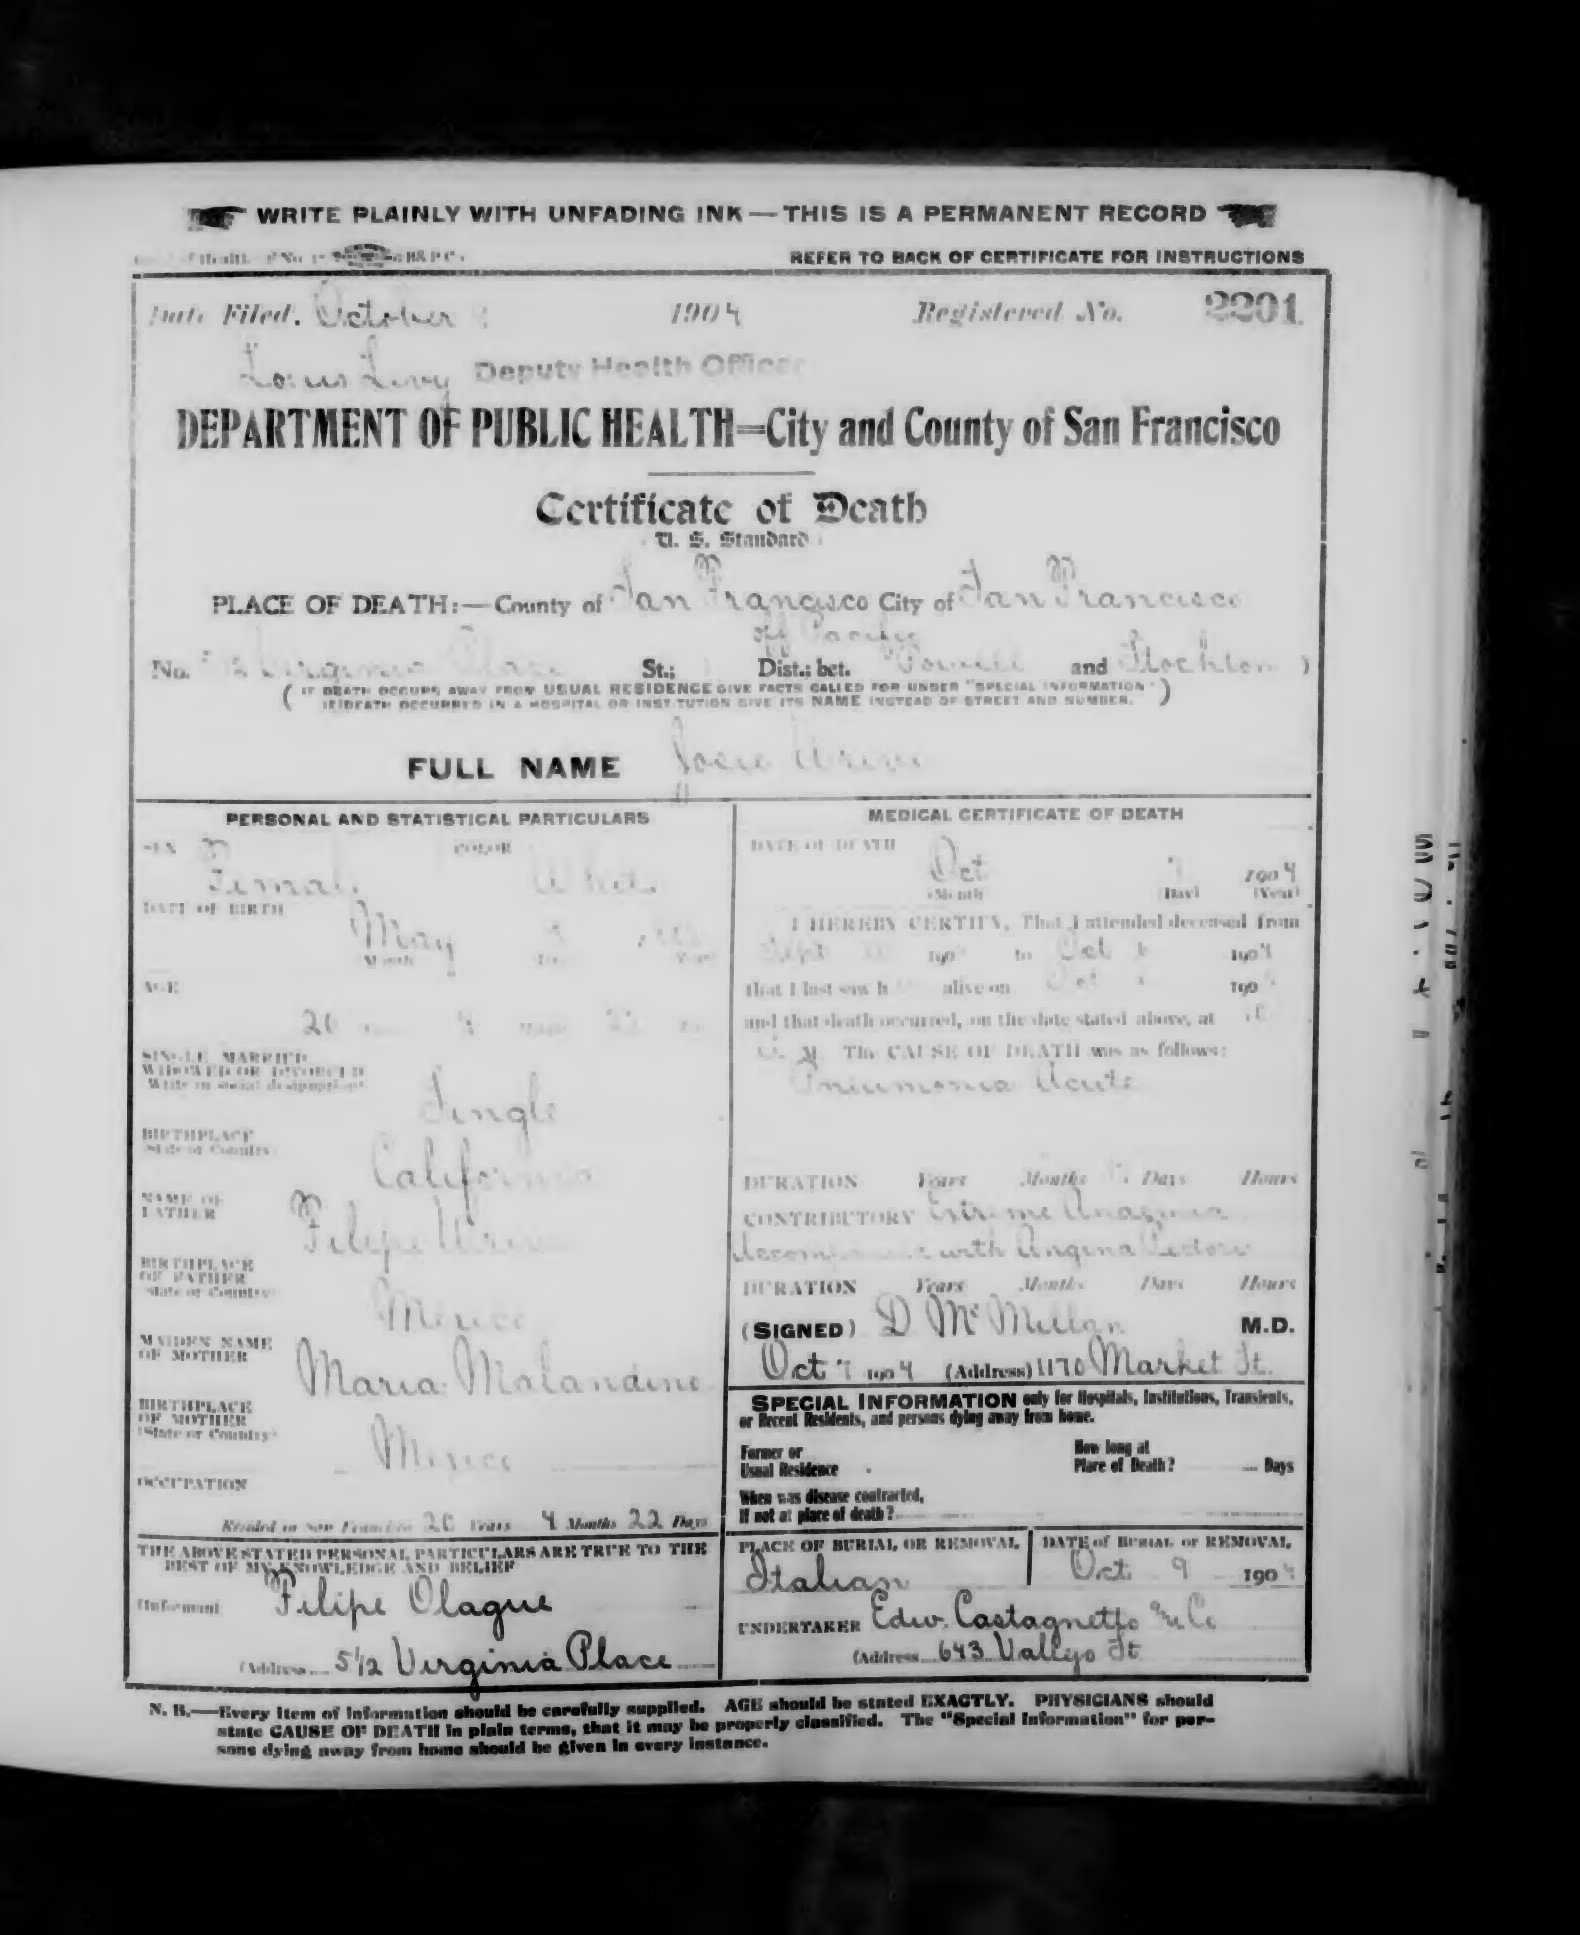 WRITE PLAINLY WITH UNFADING INK — THIS IS A PERMANENT RECORD
REFER TO BACK OF CERTIFICATE FOR INSTRUCTIONS
Date Filed. October 1904 Registered No. 2201
Louis Levy Deputy Health Officer
DEPARTMENT OF PUBLIC HEALTH=City and County of San Francisco
Certificate of Death
U. S. Standard
PLACE OF DEATH:—County of San Francisco City of San Francisco
off Pacific
No. Virginia Place St.; Dist.; bet. Powell and Stockton )
( IF DEATH OCCURS AWAY FROM USUAL RESIDENCE GIVE FACTS CALLED FOR UNDER "SPECIAL INFORMATION" )
( IF DEATH OCCURRED IN A HOSPITAL OR INSTITUTION GIVE ITS NAME INSTEAD OF STREET AND NUMBER. )
FULL NAME Josie
PERSONAL AND STATISTICAL PARTICULARS
SEX Female COLOR White
DATE OF BIRTH
May
Month
AGE
4 22
SINGLE, MARRIED,
WIDOWED OR DIVORCED
Write in social designation
Single
BIRTHPLACE
State or Country
California
NAME OF
FATHER
Filipe
BIRTHPLACE
OF FATHER
State or Country
Mexico
MAIDEN NAME
OF MOTHER
Maria Malandino
BIRTHPLACE
OF MOTHER
(State or Country)
Mexico
OCCUPATION
Resided in San Francisco 20 Years 4 Months 22 Days
THE ABOVE STATED PERSONAL PARTICULARS ARE TRUE TO THE
BEST OF MY KNOWLEDGE AND BELIEF
(Informant Filipe Olague
(Address 5 1/2 Virginia Place
MEDICAL CERTIFICATE OF DEATH
DATE OF DEATH
Oct 7 1904
(Month (Day) (Year)
I HEREBY CERTIFY, That I attended deceased from
Sept 190 to Oct 6 1904
that I last saw h alive on Oct 190
and that death occurred, on the date stated above, at
M. The CAUSE OF DEATH was as follows:
Pneumonia Acute
DURATION Years Months Days Hours
CONTRIBUTORY Extreme
with Angina Pectoris
DURATION Years Months Days Hours
(SIGNED) D McMillan M.D.
Oct 7 1904 (Address) 1170 Market St.
SPECIAL INFORMATION only for Hospitals, Institutions, Transients,
or Recent Residents, and persons dying away from home.
Former or
Usual Residence
How long at
Place of Death? Days
When was disease contracted,
If not at place of death?
PLACE OF BURIAL OR REMOVAL
Italian
DATE of BURIAL or REMOVAL
Oct 9 190
UNDERTAKER Edw. Castagnetto & Co
(Address 643 Vallejo St
N. B.—Every item of information should be carefully supplied. AGE should be stated EXACTLY. PHYSICIANS should
state CAUSE OF DEATH in plain terms, that it may be properly classified. The "Special Information" for per-
sons dying away from home should be given in every instance.